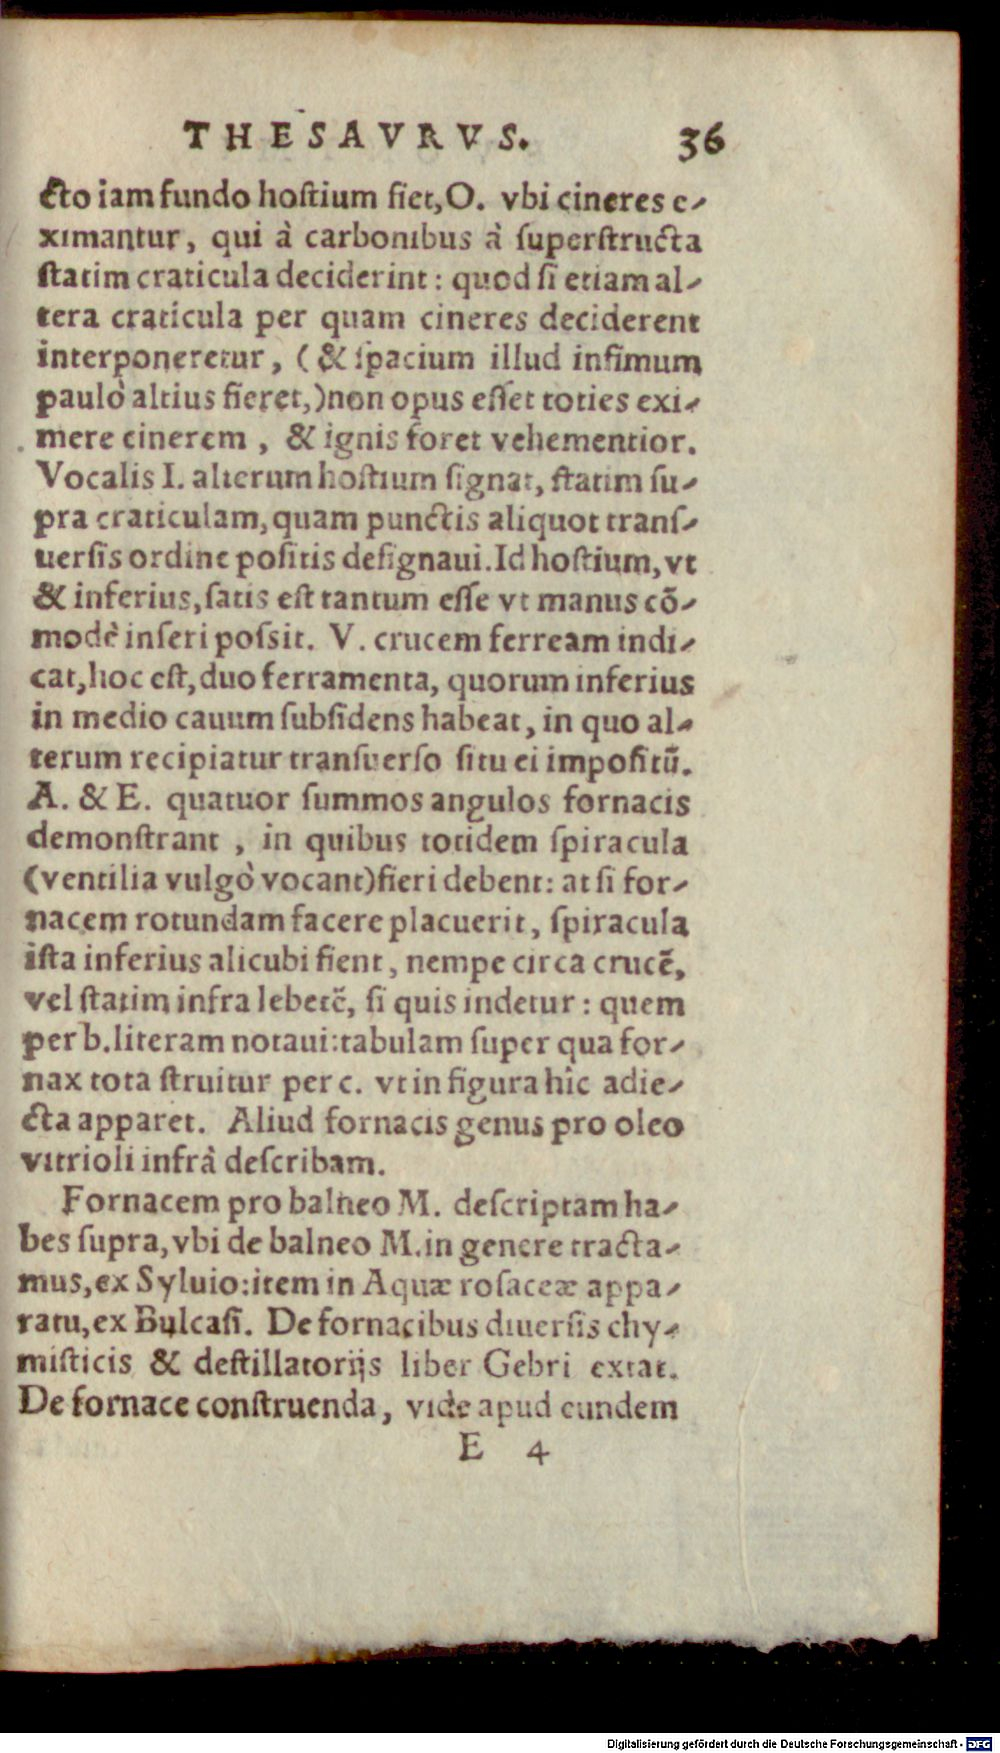 THESAVRVS. 36
cto iam fundo hostium fiet, O. vbi cineres e-
ximantur, qui à carbonibus à superstructa
statim craticula deciderint: quod si etiam al-
tera cratícula per quam cineres deciderent
interponeretur, (& spacium illud infimum
paulò altius fieret,) non opus esset toties exi-
mere cinerem, & ignis foret vehementior.
Vocalis I. alterum hostium signat, statim su-
pra craticulam, quam punctis aliquot trans-
uersis ordine positis designaui. Id hostium, vt
& inferius, satis est tantum esse vt manus cõ-
modè inseri possit. V. crucem ferream indi-
cat, hoc est, duo ferramenta, quorum inferius
in medio cauum subsidens habeat, in quo al-
terum recipiatur transuerso situ ei impositũ.
A. & E. quatuor summos angulos fornacis
demonstrant, in quibus totidem spiracula
(ventilia vulgò vocant) fieri debent: at si for-
nacem rotundam facere placuerit, spiracula
ista inferius alicubi fient, nempe circa crucẽ,
vel statim infra lebetẽ, si quis indetur: quem
per b. literam notaui: tabulam super qua for-
nax tota struitur per c. vt in figura hîc adie-
cta apparet. Aliud fornacis genus pro oleo
vitrioli infrà describam.
Fornacem pro balneo M. descriptam ha-
bes supra, vbi de balneo M. in genere tracta-
mus, ex Syluio: item in Aquæ rosaceæ appa-
ratu, ex Bulcasi. De fornacibus diuersis chy-
misticis & destillatorijs liber Gebri extat.
De fornace construenda, vide apud eundem
E 4
Digitalisierung gefördert durch die Deutsche Forschungsgemeinschaft - DFG